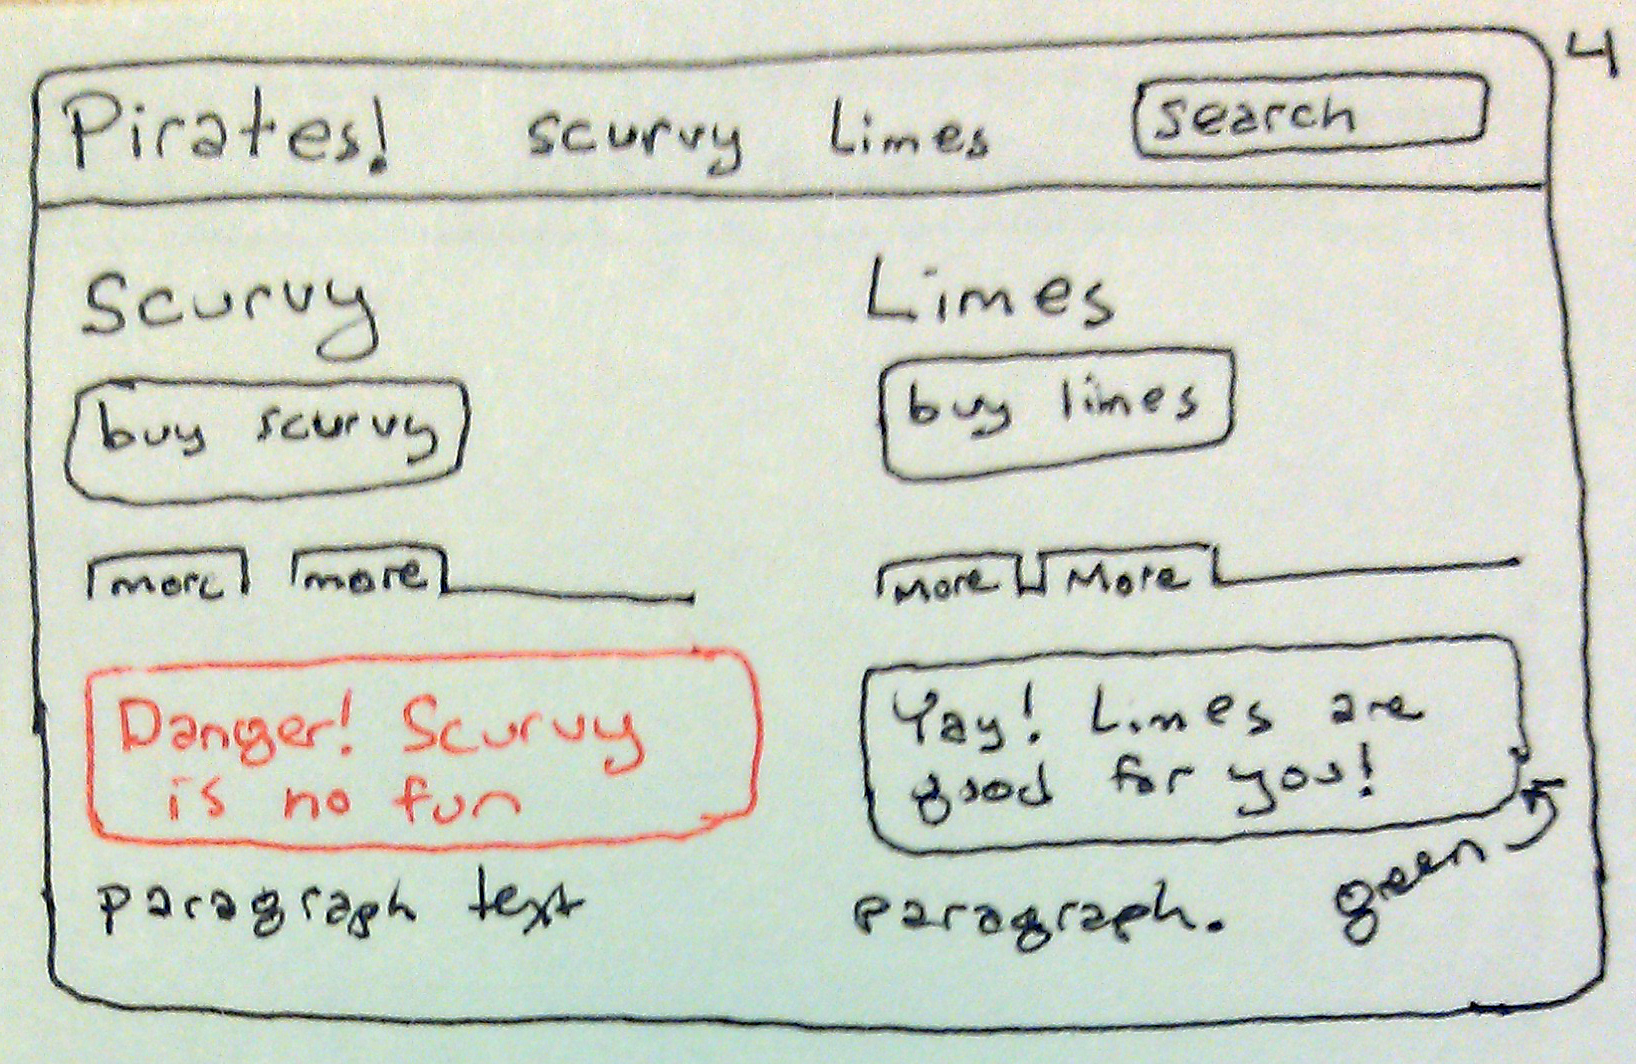 4
Pirates! scurvy Limes search
Scurvy
buy scurvy
more more
Danger! Scurvy
is no fun
paragraph text
Limes
buy limes
More More
Yay! Limes are
good for you!
green
paragraph.